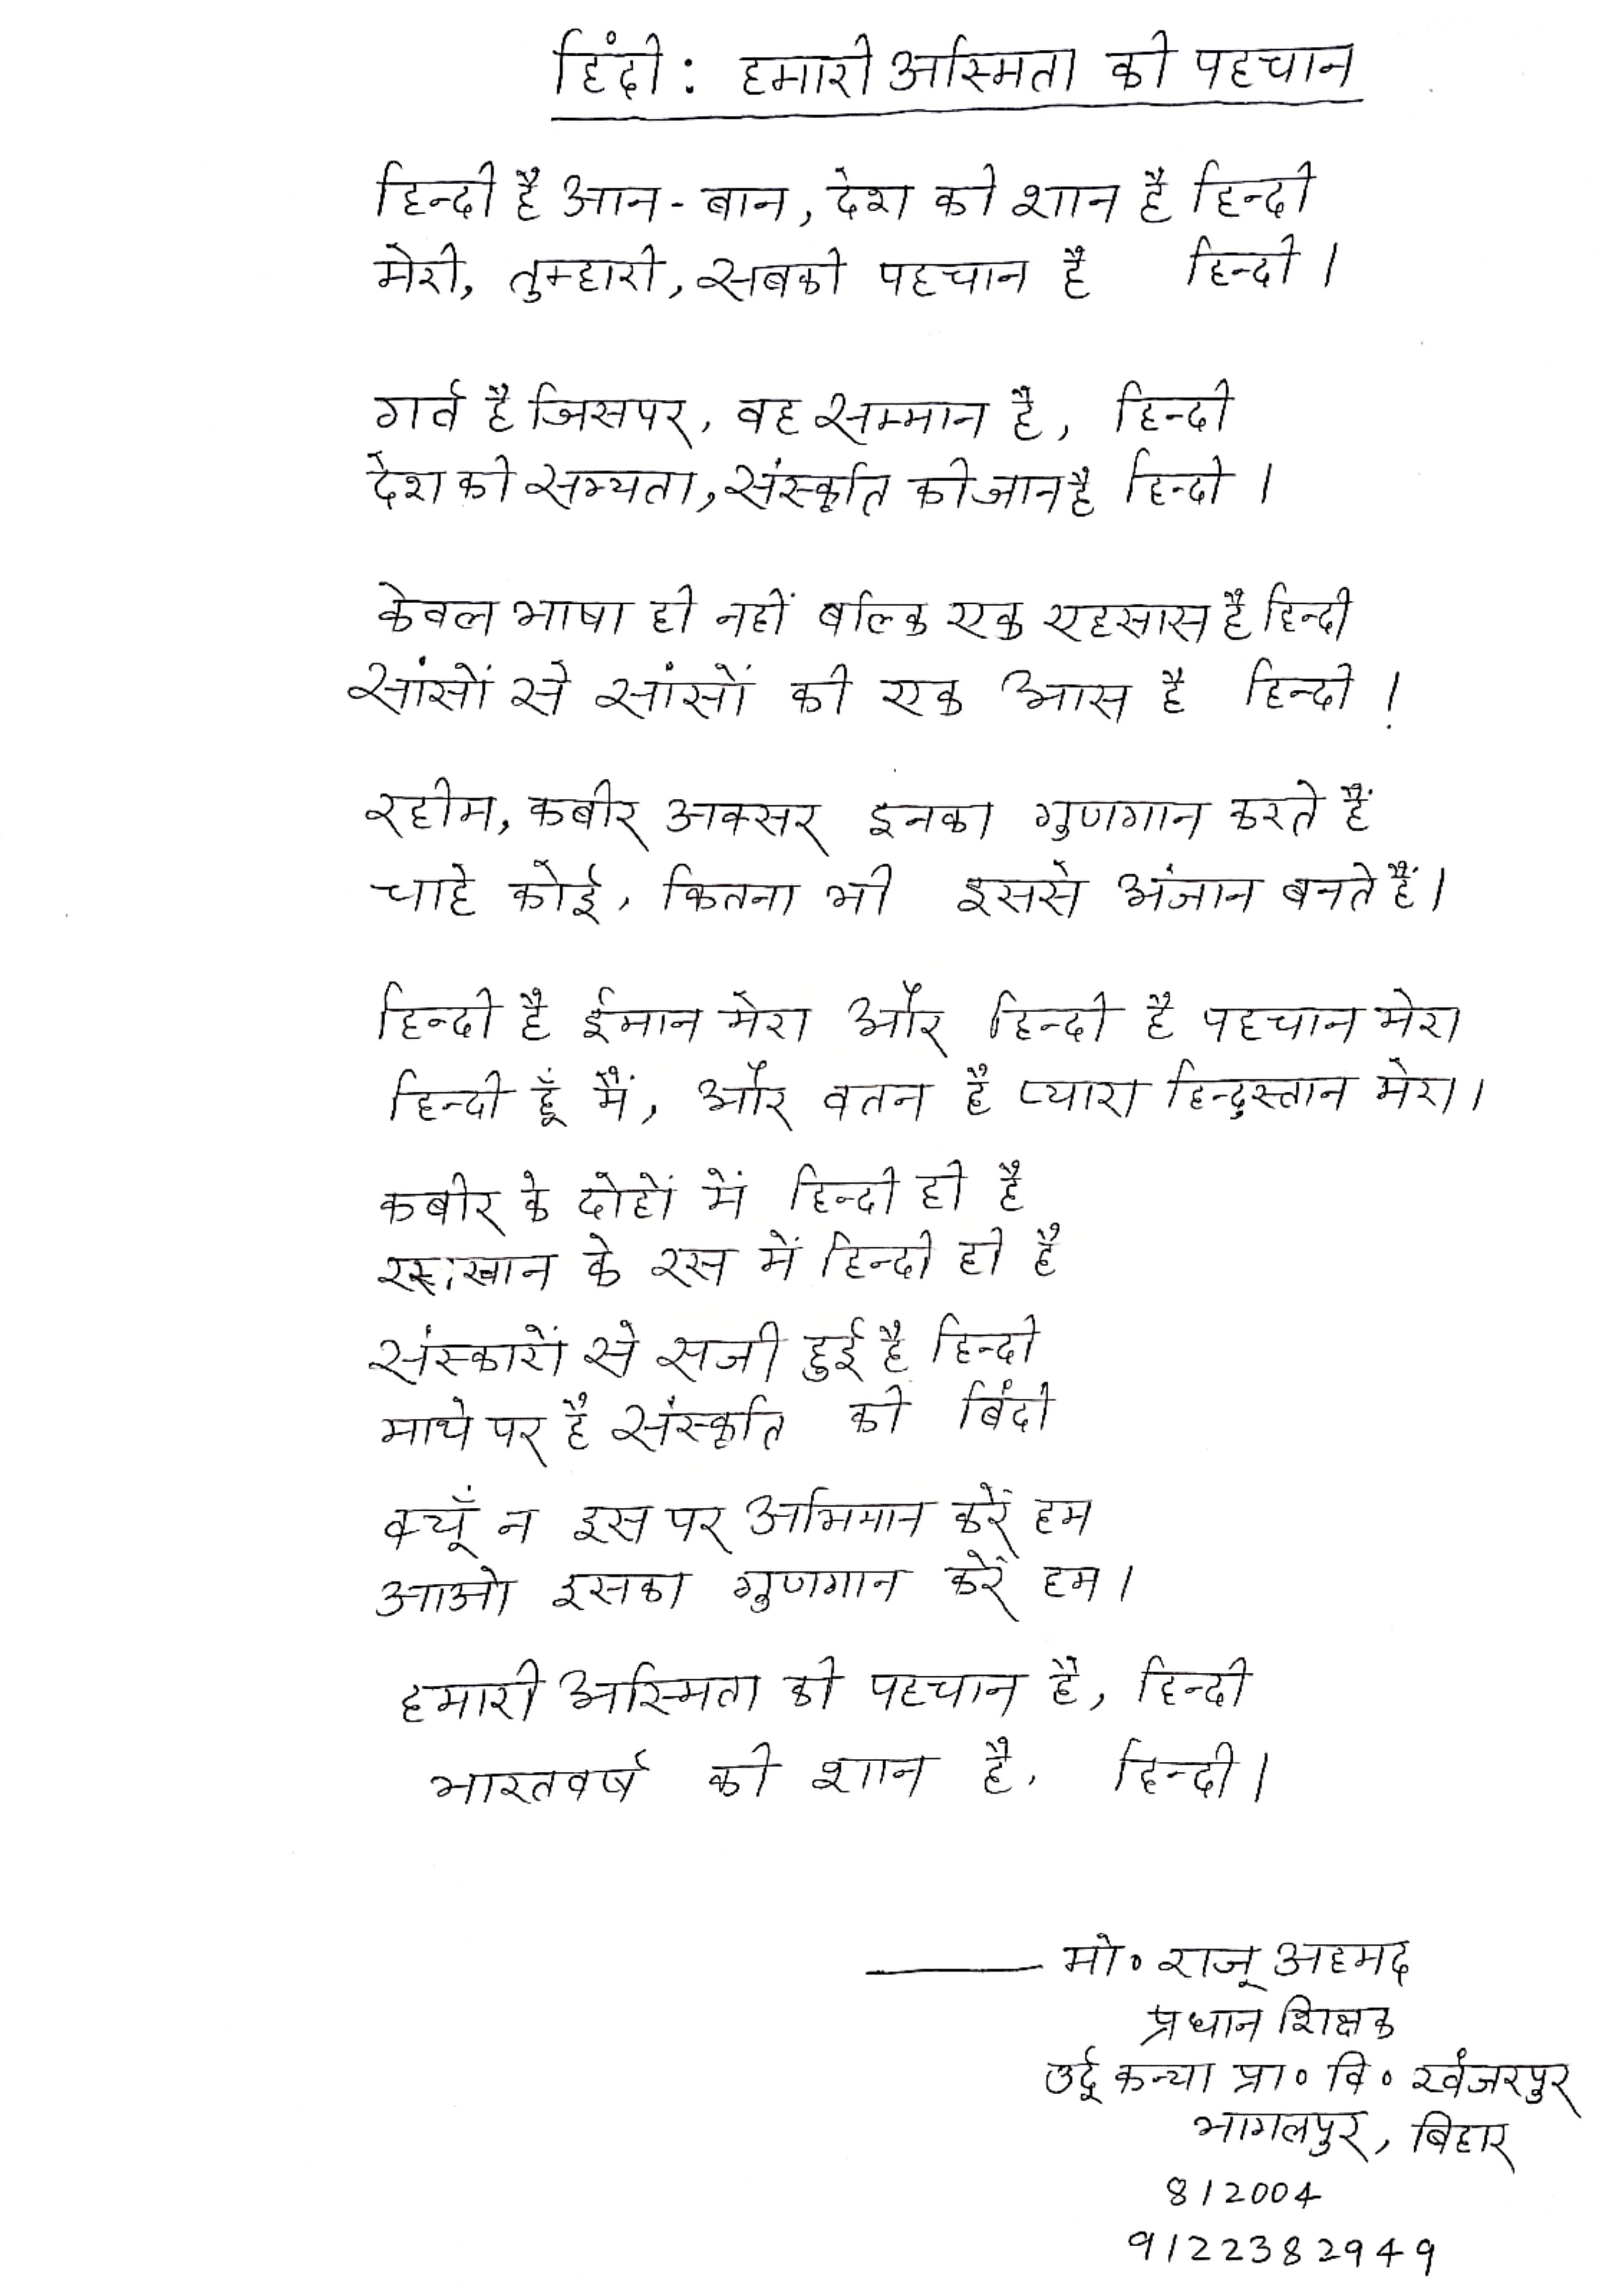 हिंदी : हमारी अस्मिता की पहचान
हिन्दी है आन - बान, देश की शान है हिन्दी
मेरी, तुम्हारी, सबकी पहचान है हिन्दी।
गर्व है जिसपर, वह सम्मान है, हिन्दी
देश की सभ्यता, संस्कृति की जान है हिन्दी।
केवल भाषा ही नहीं बल्कि एक एहसास है हिन्दी
सांसों से सांसों की एक आस है हिन्दी !
रहीम, कबीर अक्सर इनका गुणगान करते हैं
चाहे कोई, कितना भी इससे अंजान बनते हैं।
हिन्दी है ईमान मेरा और हिन्दी है पहचान मेरा
हिन्दी हूँ मैं, और वतन है प्यारा हिन्दुस्तान मेरा।
कबीर के दोहों में हिन्दी ही है
रसखान के रस में हिन्दी ही है
संस्कारों से सजी हुई है हिन्दी
माथे पर है संस्कृति की बिंदी
क्यूँ न इस पर अभिमान करें हम
आओ इसका गुणगान करें हम।
हमारी अस्मिता की पहचान है, हिन्दी
भारतवर्ष की शान है, हिन्दी।
—— मो० राजू अहमद
प्रधान शिक्षक
उर्दू कन्या प्रा० वि० खंजरपुर
भागलपुर, बिहार
812004
9122382949